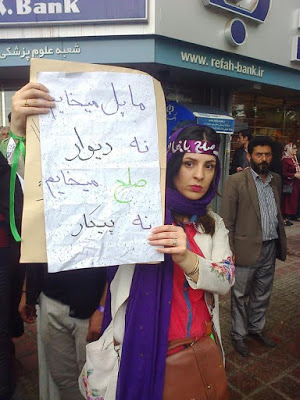 k.Bank
شعبه علوم پزشکی
www.refah-bank.ir
ما پل میخایم
نه دیوار
صلح میخایم
نه پیکار